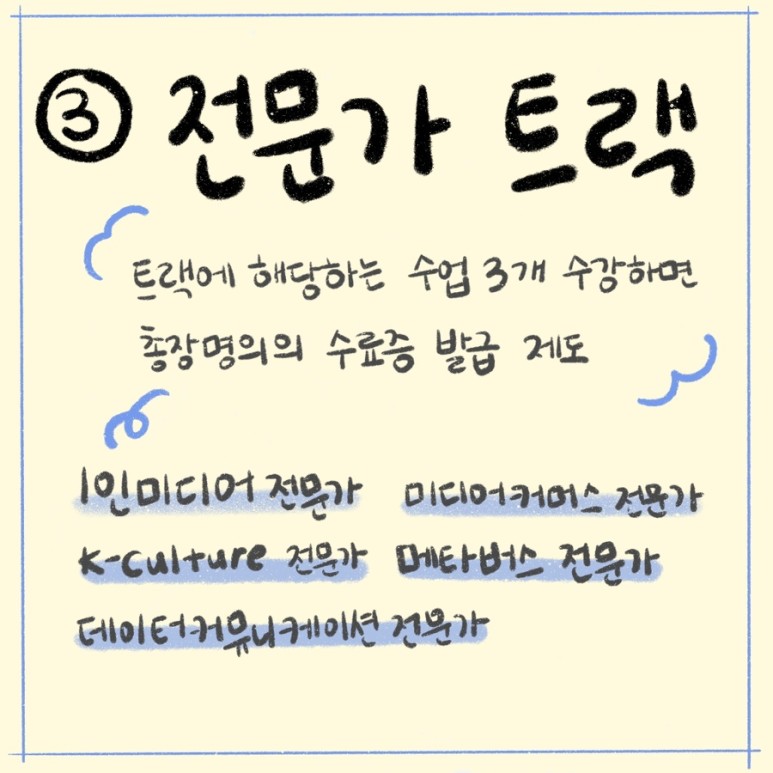 ③ 전문가 트랙
트랙에 해당하는 수업 3개 수강하면
총장명의의 수료증 발급 제도
1인미디어 전문가 미디어커머스 전문가
K-culture 전문가 메타버스 전문가
데이터커뮤니케이션 전문가